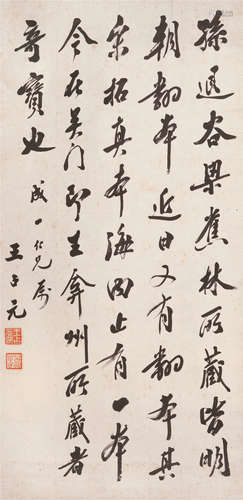 孫退谷梁蕉林所藏皆明
朝翻本近日又有翻本其
宋拓真本海内止有一本
今在吴门即王弇州所藏者
奇寶也
成一仁兄属
王占元